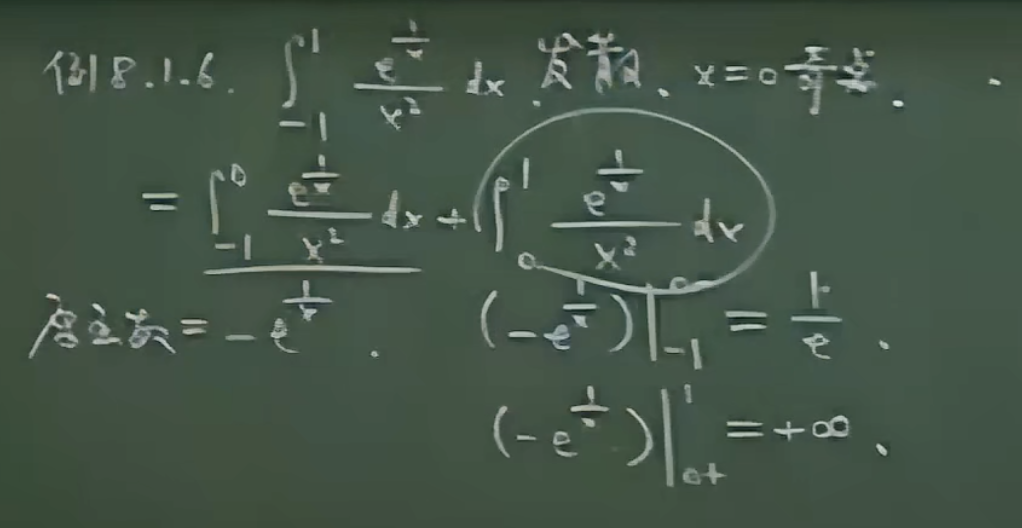 例 8.1.6. ∫_{-1}^{1} \frac{e^{\frac{1}{x}}}{x^2} dx. 发散. x=0 奇点.
= ∫_{-1}^{0} \frac{e^{\frac{1}{x}}}{x^2} dx + ∫_{0}^{1} \frac{e^{\frac{1}{x}}}{x^2} dx
原函数 = -e^{\frac{1}{x}}. (-e^{\frac{1}{x}})|_{-1}^{0-} = \frac{1}{e}.
(-e^{\frac{1}{x}})|_{0+}^{1} = +∞.